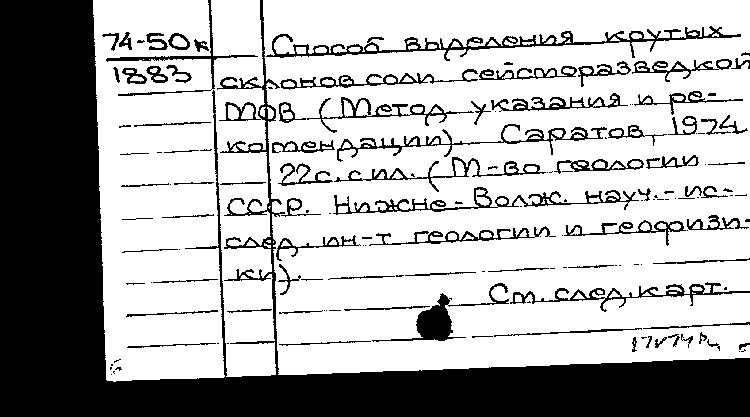 74-50к Способ выделения крутых
1883 склонов соли сейсморазведкой
МОВ (Метод. указания и ре-
комендации). Саратов, 1974
22с. с ил. (М-во геологии
СССР. Нижне-Волж. науч.-ис-
след. ин-т геологии и геофизи-
ки).
См. след. карт.